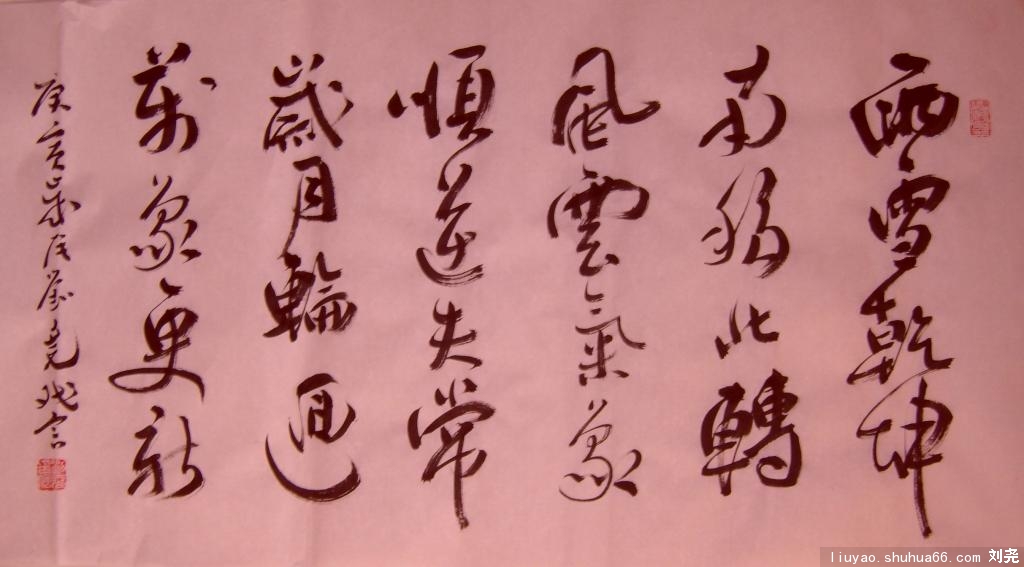 雨雪乾坤
南移北轉
風雲氣象
順逆失常
歲月輪迴
萬象更新
庚寅 劉堯
liuyao.shuhua66.com 刘尧